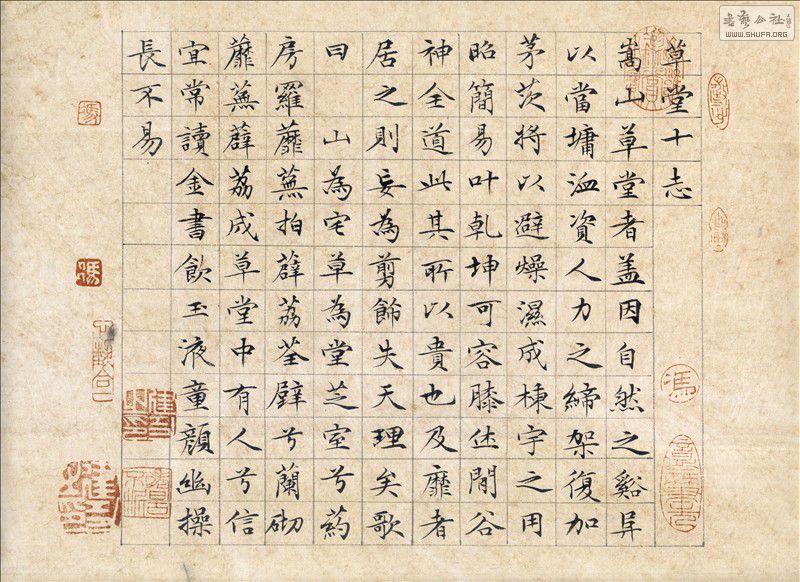 草堂十志
嵩山草堂者盖因自然之谿阜
以當墉洫資人力之締架復加
茅茨將以避燥濕成棟宇之用
昭簡易叶乾坤可容膝休閒谷
神全道此其所以貴也及靡者
居之則妄為剪飾失天理矣歌
曰 山為宅草為堂芝室兮葯
房羅蘼蕪拍薜荔荃壁兮蘭砌
蘼蕪薜荔成草堂中有人兮信
宜常讀金書飲玉液童顏幽操
長不易
馮
馮
書藝公社
WWW.SHUFA.ORG